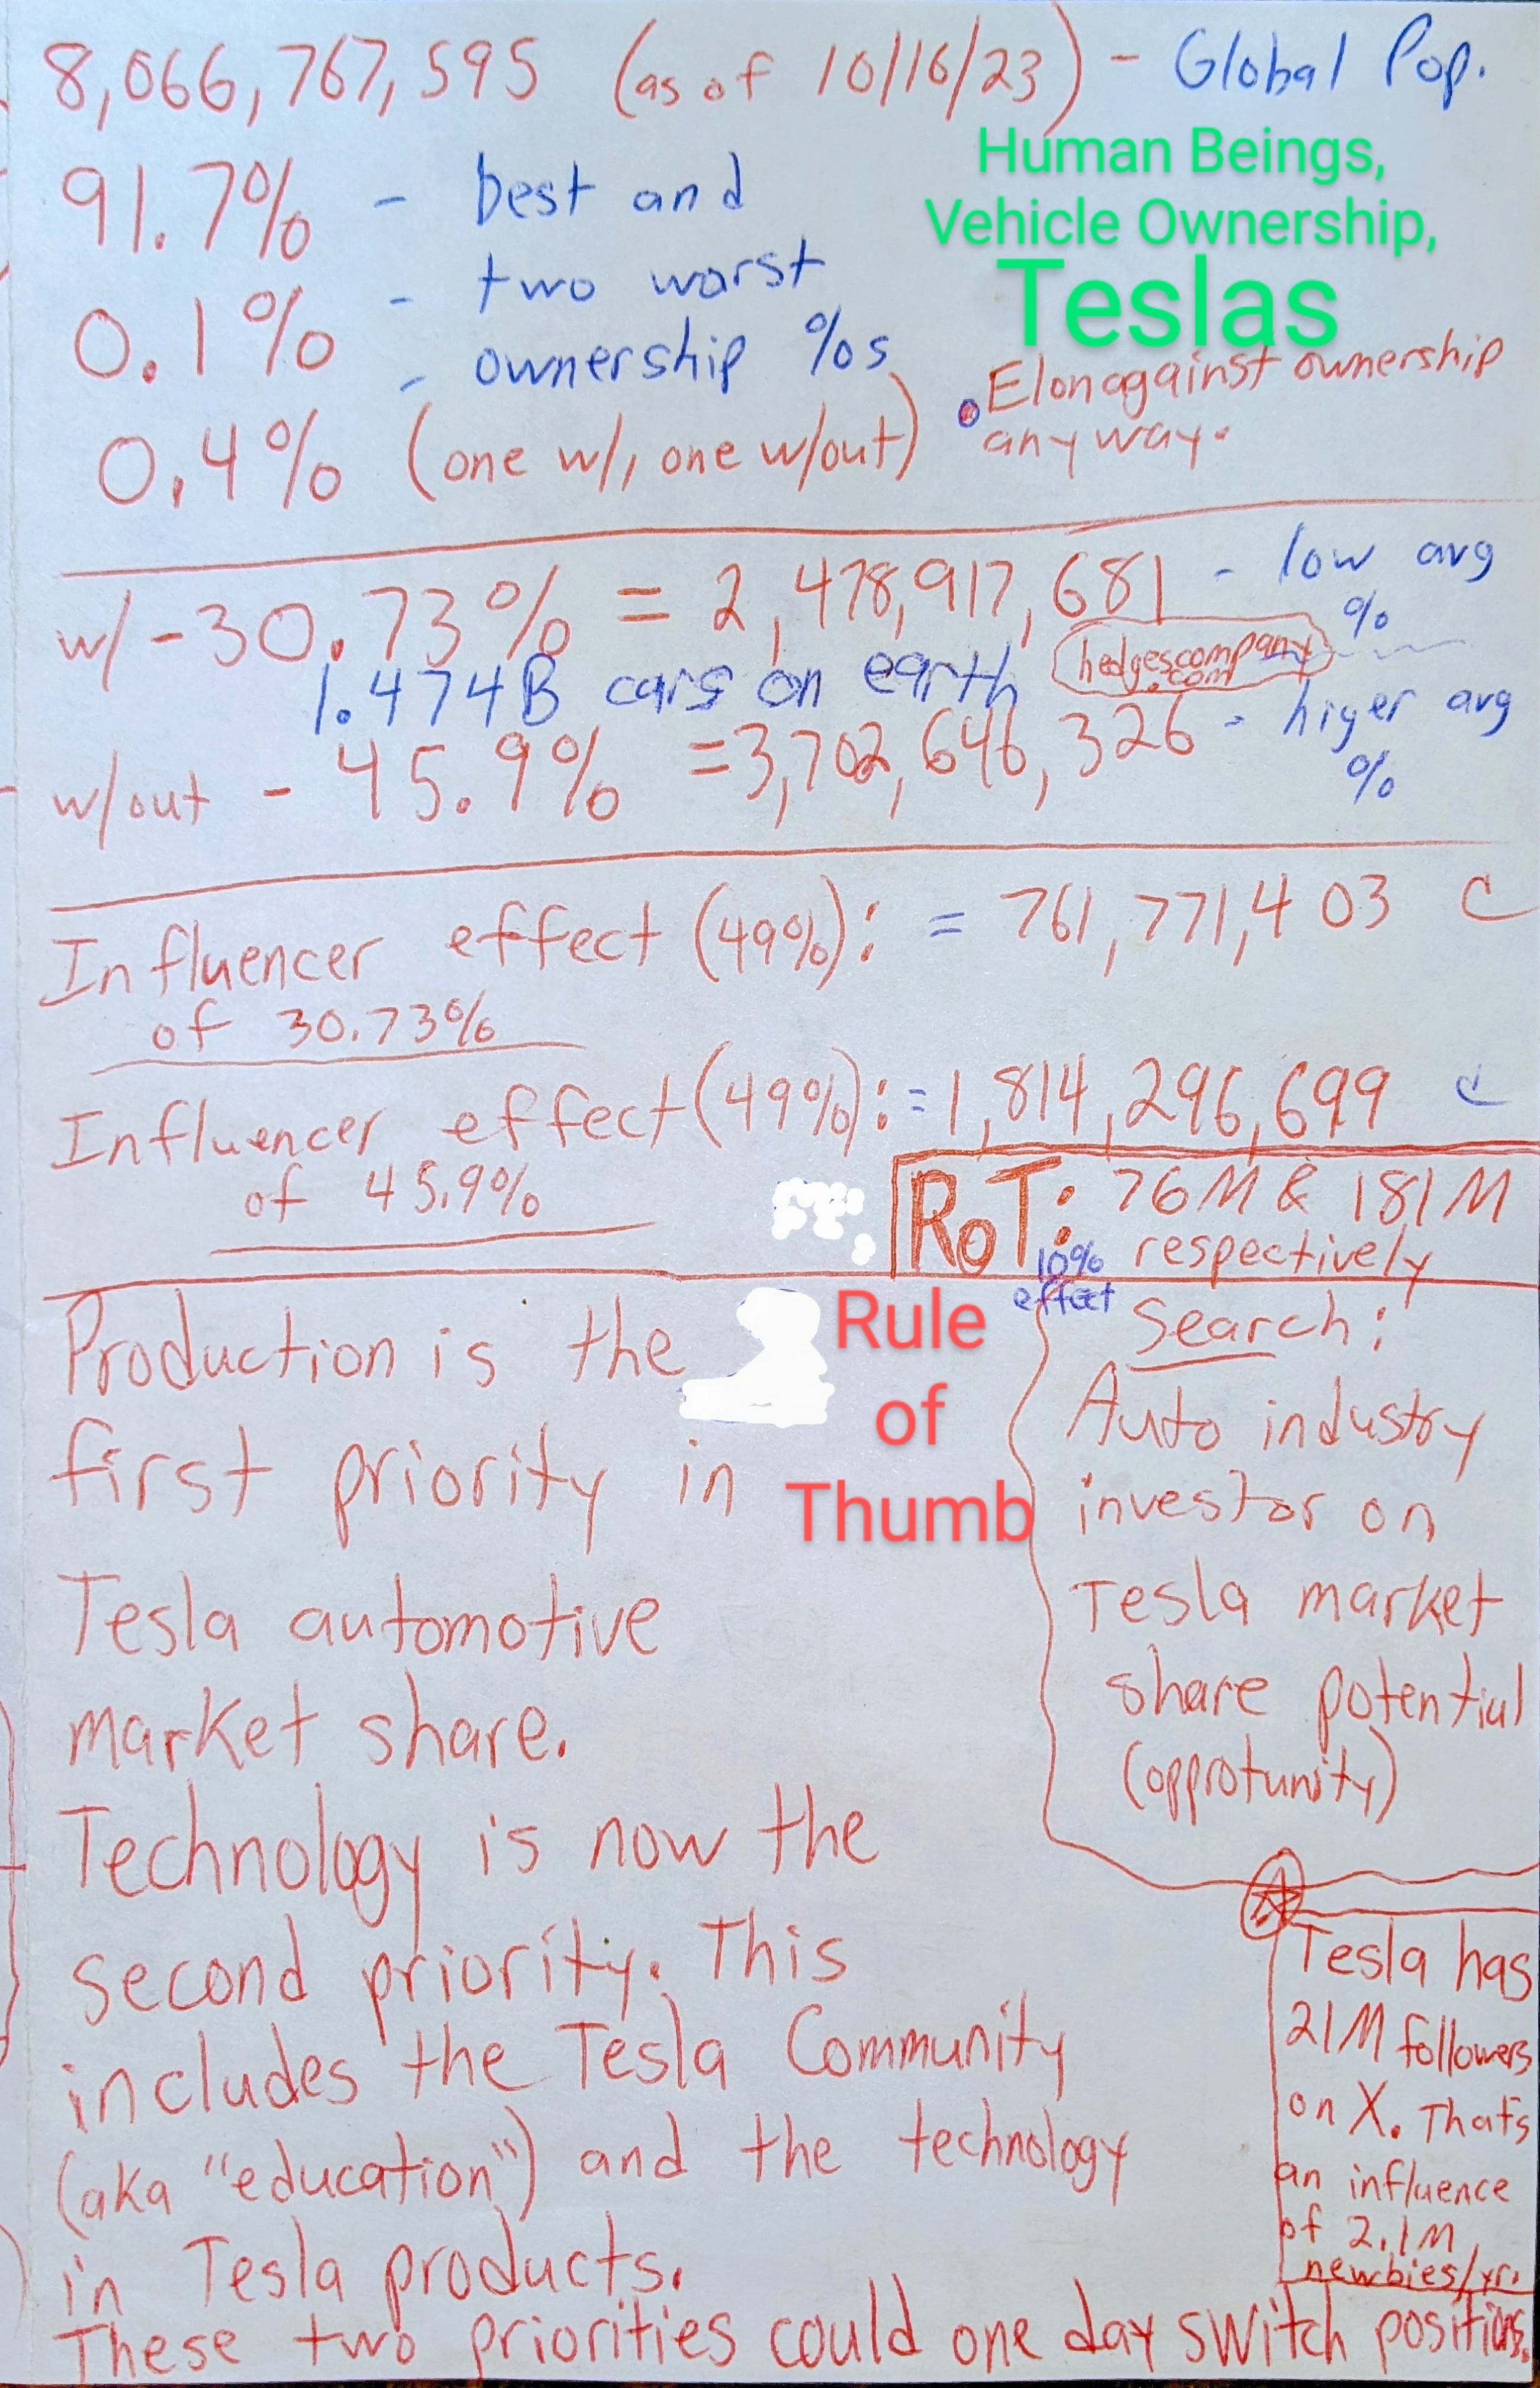 8,066,767,595 (as of 10/16/23) - Global Pop.
Human Beings,
Vehicle Ownership,
Teslas
91.7% - best and
0.1% - two worst
- ownership %s
0.4% (one w/, one w/out)
• Elon against ownership
anyway.
w/ - 30.73% = 2,478,917,681 - low avg
%
hedgescompany
.com
1.474B cars on earth
w/out - 45.9% = 3,702,646,326 - higer avg
%
Influencer effect (49%): = 761,771,403 C
of 30.73%
Influencer effect (49%): = 1,814,296,699 C
of 45.9%
RoT: 76M & 181M
10% respectively
effect
Rule
of
Thumb
Production is the
first priority in
Tesla automotive
market share.
Technology is now the
second priority. This
includes the Tesla Community
(aka "education") and the technology
in Tesla products.
These two priorities could one day switch positions.
Search:
Auto industry
investor on
Tesla market
share potential
(opprotunity)
Tesla has
21M followers
on X. That's
an influence
of 2.1M
newbies/yr.